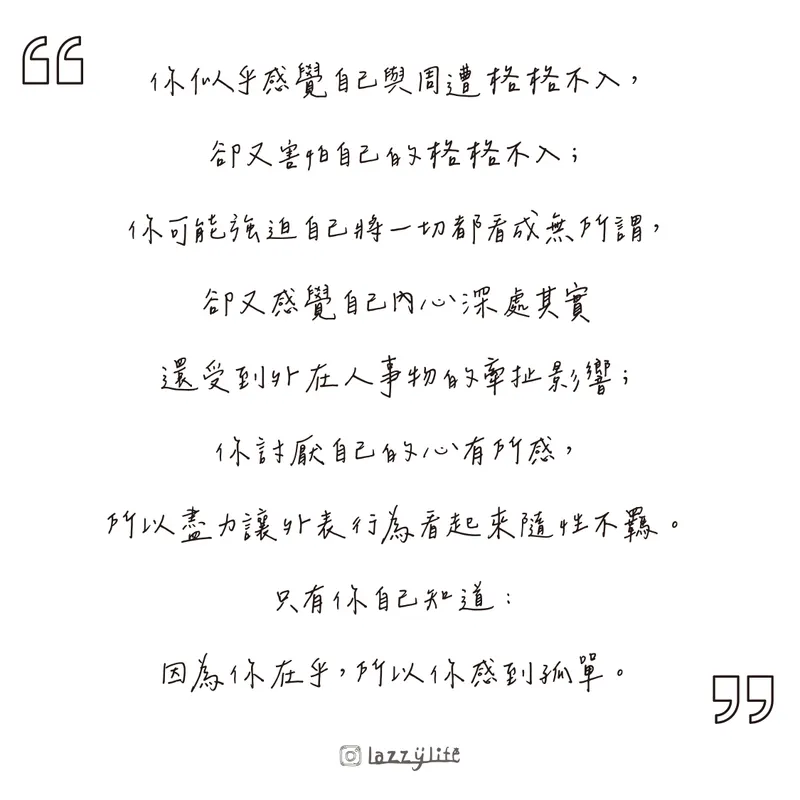 你似乎感覺自己與周遭格格不入，
卻又害怕自己的格格不入；
你可能強迫自己將一切都看成無所謂，
卻又感覺自己內心深處其實
還受到外在人事物的牽扯影響；
你討厭自己的心有所感，
所以盡力讓外表行為看起來隨性不羈。
只有你自己知道：
因為你在乎，所以你感到孤單。
lazzylife